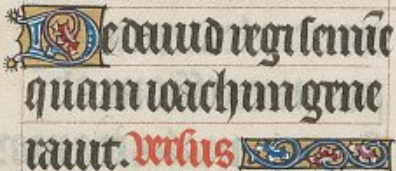 De dauid regi semine
quam ioachim gene
rauit. Versus